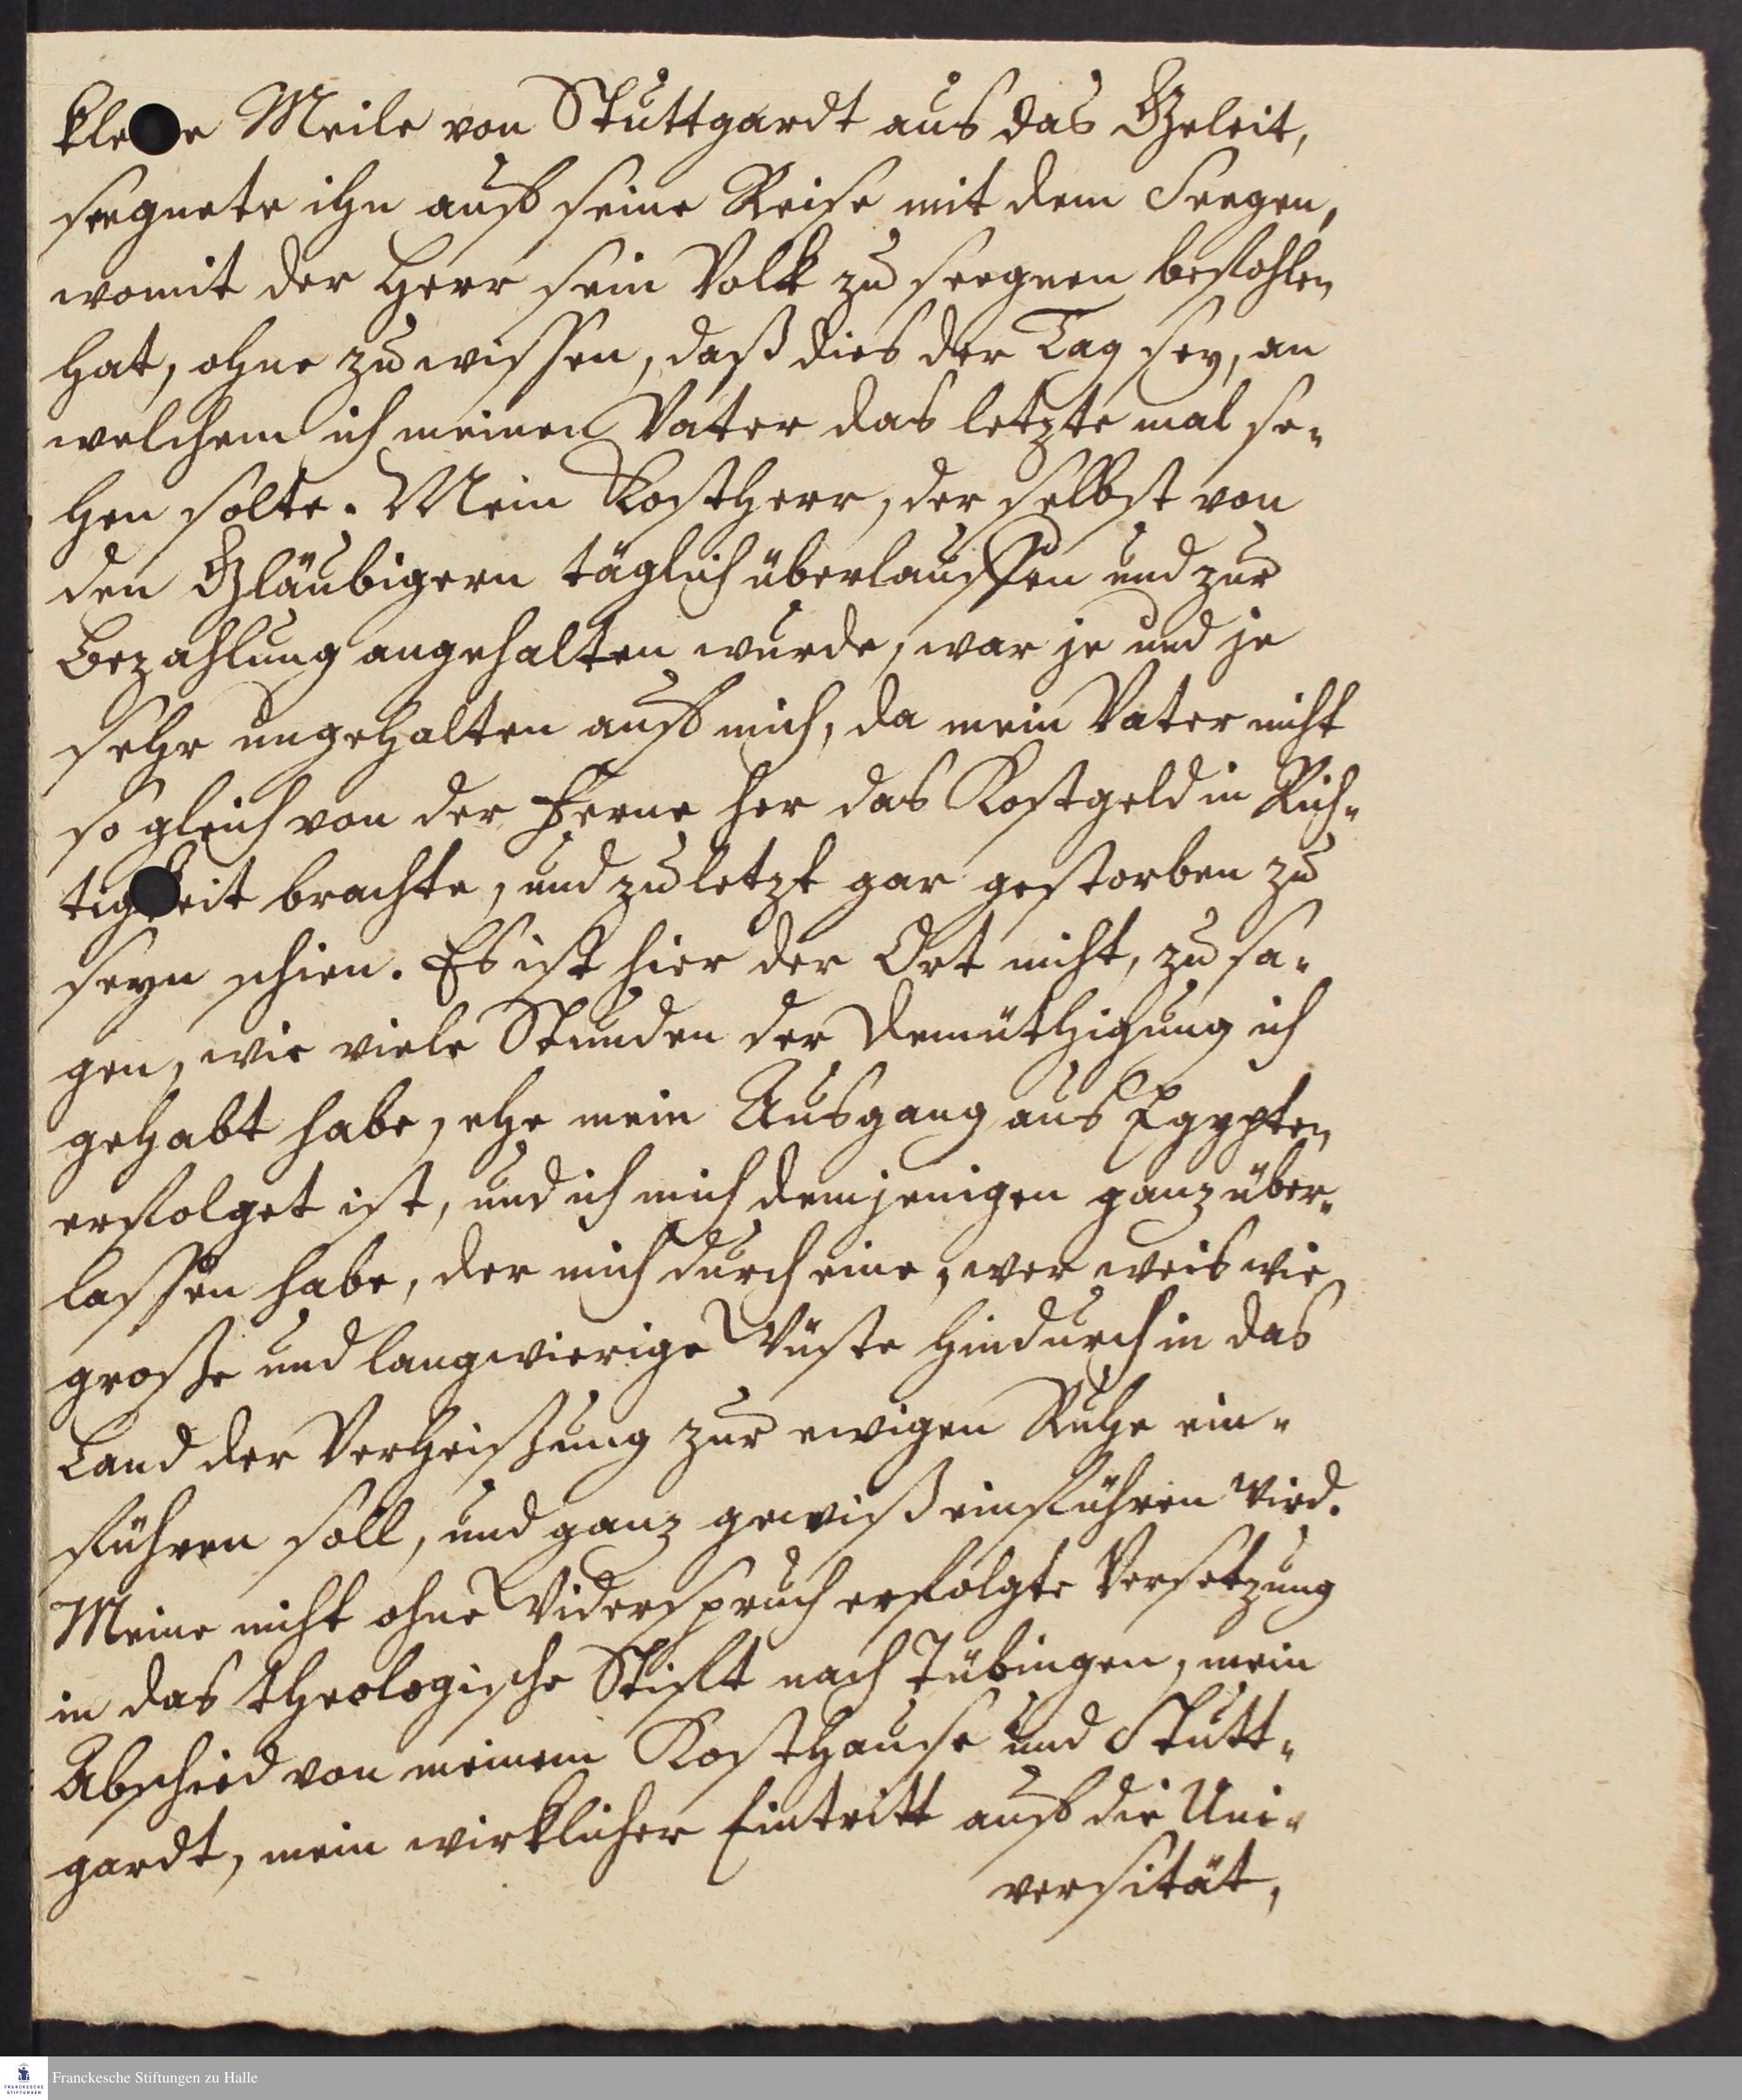 kleine Meile von Stuttgardt aus das Geleit,
seegnete ihn auf seine Reise mit dem Seegen,
womit der Herr sein Volk zu seegnen befohlen
hat, ohne zu wissen, daß dies der Tag sey, an
welchem ich meinen Vater das letzte mal se-
hen solte. Mein Kostherr, der selbst von
den Gläubigern täglich überlauffen und zur
Bezahlung angehalten wurde, war je und je
sehr ungehalten auf mich, da mein Vater nicht
so gleich von der Ferne her das Kostgeld in Rich-
tigkeit brachte, und zuletzt gar gestorben zu
seyn schien. Es ist hier der Ort nicht, zu sa-
gen, wie viele Stunden der Demüthigung ich
gehabt habe, ehe mein Ausgang aus Egypten
erfolget ist, und ich mich demjenigen ganz über-
lassen habe, der mich durch eine, wer weis wie
grosse und langwierige Wüste hindurch in das
Land der Verheissung zur ewigen Ruhe ein-
führen soll, und ganz gewiß einführen wird.
Meine nicht ohne Widerspruch erfolgte Versetzung
in das theologische Stift nach Tübingen, mein
Abschied von meinem Kosthause und Stutt-
gardt, mein wirklicher Eintritt auf die Uni-
versität,
Franckesche Stiftungen zu Halle
FRANCKESCHE
STIFTUNGEN